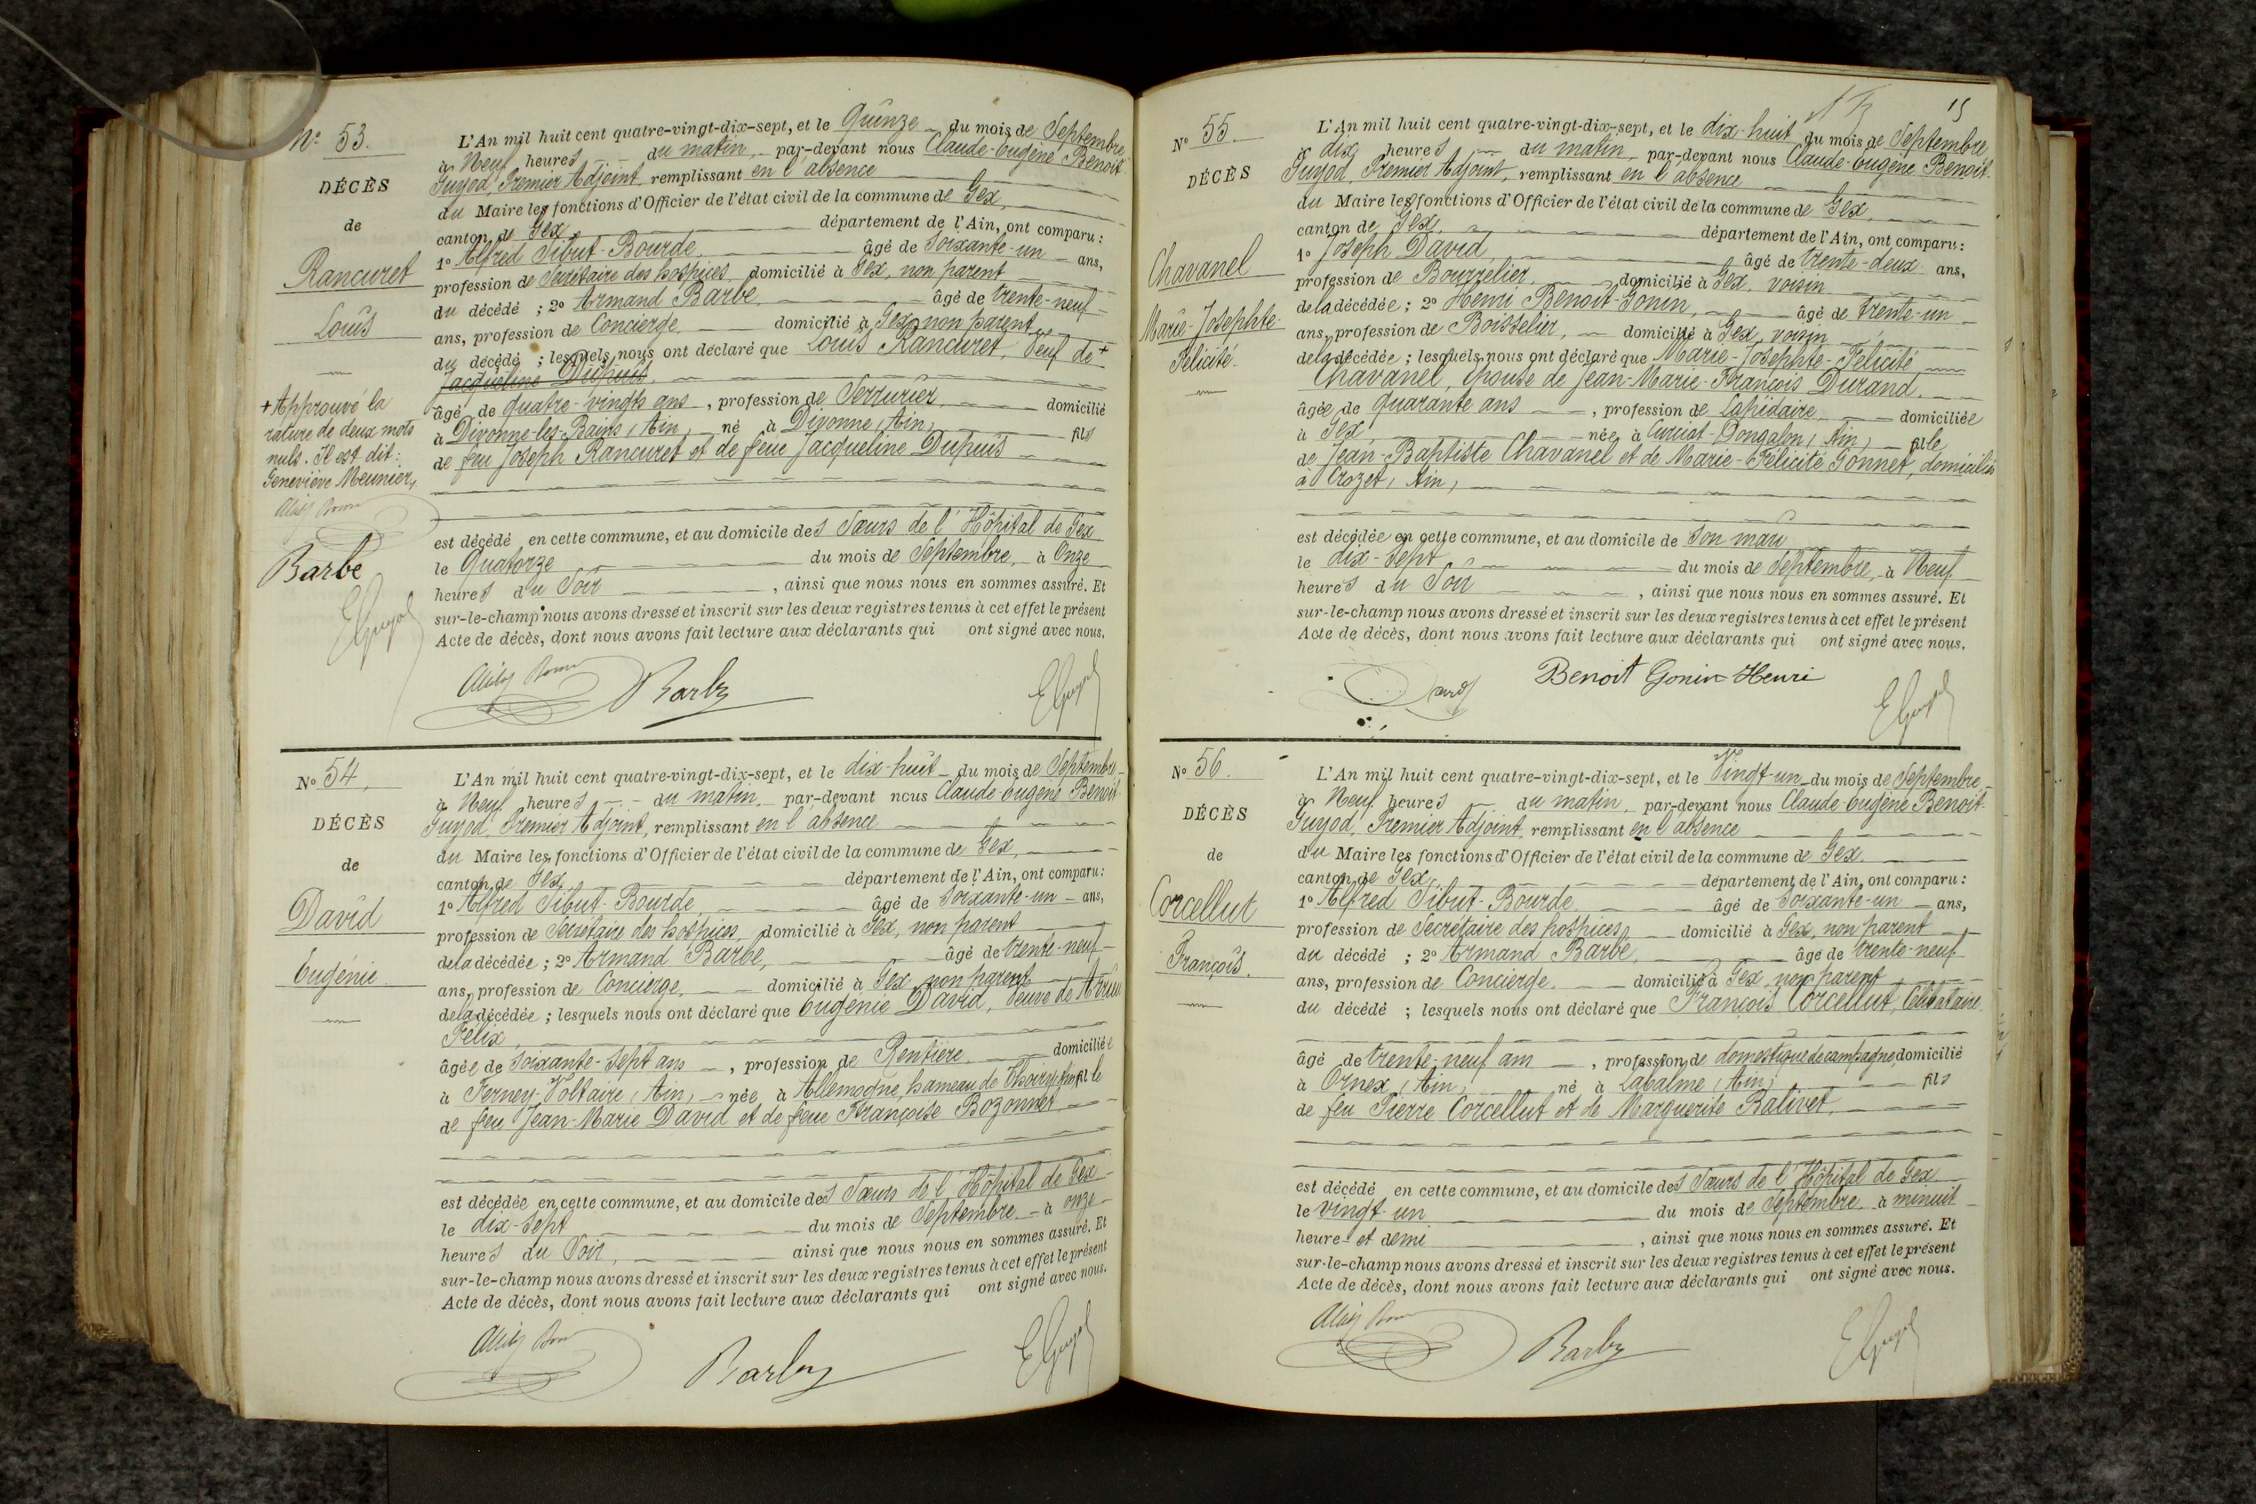 N° 53.
DÉCÈS
de
Rancuret
Louis
+ Approuvé la
rature de deux mots
nuls. Il est dit :
Geneviève Meunier,
Barbe
EGuyod
L'An mil huit cent quatre-vingt-dix-sept, et le Quinze du mois de Septembre
à Neuf heures du matin, par-devant nous Claude-Eugène Benoit-
Guyod, Premier Adjoint, remplissant en l'absence
du Maire les fonctions d'Officier de l'état civil de la commune de Gex,
canton de Gex, département de l'Ain, ont comparu :
1° Alfred Tibut-Bourde, âgé de soixante-un ans,
profession de Secrétaire des hospices, domicilié à Gex, non parent
du décédé ; 2° Armand Barbe, âgé de trente-neuf
ans, profession de Concierge, domicilié à Gex, non parent
du décédé ; lesquels nous ont déclaré que Louis Rancuret, Veuf de +
Jacqueline Dupuis,
âgé de quatre-vingts ans, profession de Serrurier, domicilié
à Divonne-les-Bains, Ain, né à Divonne, Ain, fils
de feu Joseph Rancuret et de feue Jacqueline Dupuis
est décédé en cette commune, et au domicile des Sœurs de l'Hôpital de Gex
le Quatorze du mois de Septembre, à Onze
heures du Soir, ainsi que nous nous en sommes assuré. Et
sur-le-champ nous avons dressé et inscrit sur les deux registres tenus à cet effet le présent
Acte de décès, dont nous avons fait lecture aux déclarants qui ont signé avec nous.
Barbe
EGuyod
N° 54.
DÉCÈS
de
David
Eugénie
L'An mil huit cent quatre-vingt-dix-sept, et le dix-huit du mois de Septembre
à Neuf heures du matin, par-devant nous Claude-Eugène Benoit-
Guyod, Premier Adjoint, remplissant en l'absence
du Maire les fonctions d'Officier de l'état civil de la commune de Gex,
canton de Gex, département de l'Ain, ont comparu :
1° Alfred Tibut-Bourde, âgé de soixante-un ans,
profession de Secrétaire des hospices, domicilié à Gex, non parent
de la décédée ; 2° Armand Barbe, âgé de trente-neuf
ans, profession de Concierge, domicilié à Gex, non parent
de la décédée ; lesquels nous ont déclaré que Eugénie David, Veuve de
Félix,
âgée de soixante-sept ans, profession de Rentière, domiciliée
à Ferney-Voltaire, Ain, née à Allemogne, hameau de Thoiry, Ain, fille
de feu Jean-Marie David et de feue Françoise Bozonnet
est décédée en cette commune, et au domicile des Sœurs de l'Hôpital de Gex
le dix-sept du mois de Septembre à onze
heures du Soir, ainsi que nous nous en sommes assuré. Et
sur-le-champ nous avons dressé et inscrit sur les deux registres tenus à cet effet le présent
Acte de décès, dont nous avons fait lecture aux déclarants qui ont signé avec nous.
Barbe
EGuyod
15
N° 55.
DÉCÈS
Chavanel
Marie-Josephte-
Félicité.
L'An mil huit cent quatre-vingt-dix-sept, et le dix-huit du mois de Septembre
à dix heures du matin, par-devant nous Claude-Eugène Benoit-
Guyod, Premier Adjoint, remplissant en l'absence
du Maire les fonctions d'Officier de l'état civil de la commune de Gex,
canton de Gex, département de l'Ain, ont comparu :
1° Joseph David, âgé de trente-deux ans,
profession de Bourrelier, domicilié à Gex, voisin
de la décédée ; 2° Henri Benoit-Gonin, âgé de trente-un
ans, profession de Boisselier, domicilié à Gex, voisin
de la décédée ; lesquels nous ont déclaré que Marie-Josephte-Félicité
Chavanel, épouse de Jean-Marie-François Durand,
âgée de quarante ans, profession de Lapidaire, domiciliée
à Gex, née à Curciat-Dongalon, Ain, fille
de Jean-Baptiste Chavanel et de Marie-Félicité Gonnet, domiciliés
à Crozet, Ain,
est décédée en cette commune, et au domicile de son mari
le dix-sept du mois de Septembre, à Neuf
heures du Soir, ainsi que nous nous en sommes assuré. Et
sur-le-champ nous avons dressé et inscrit sur les deux registres tenus à cet effet le présent
Acte de décès, dont nous avons fait lecture aux déclarants qui ont signé avec nous.
Benoit Gonin Henri
EGuyod
N° 56.
DÉCÈS
de
Corcellut
François.
L'An mil huit cent quatre-vingt-dix-sept, et le Vingt-un du mois de Septembre
à Neuf heures du matin, par-devant nous Claude-Eugène Benoit-
Guyod, Premier Adjoint, remplissant en l'absence
du Maire les fonctions d'Officier de l'état civil de la commune de Gex,
canton de Gex, département de l'Ain, ont comparu :
1° Alfred Tibut-Bourde, âgé de soixante-un ans,
profession de Secrétaire des hospices, domicilié à Gex, non parent
du décédé ; 2° Armand Barbe, âgé de trente-neuf
ans, profession de Concierge, domicilié à Gex, non parent
du décédé ; lesquels nous ont déclaré que François Corcellut, Célibataire,
âgé de trente-neuf ans, profession de domestique de campagne, domicilié
à Ornex, Ain, né à Labalme, Ain, fils
de feu Pierre Corcellut et de Marguerite Balivet,
est décédé en cette commune, et au domicile des Sœurs de l'Hôpital de Gex
le vingt-un du mois de Septembre à minuit
heure et demi, ainsi que nous nous en sommes assuré. Et
sur-le-champ nous avons dressé et inscrit sur les deux registres tenus à cet effet le présent
Acte de décès, dont nous avons fait lecture aux déclarants qui ont signé avec nous.
Barbe
EGuyod